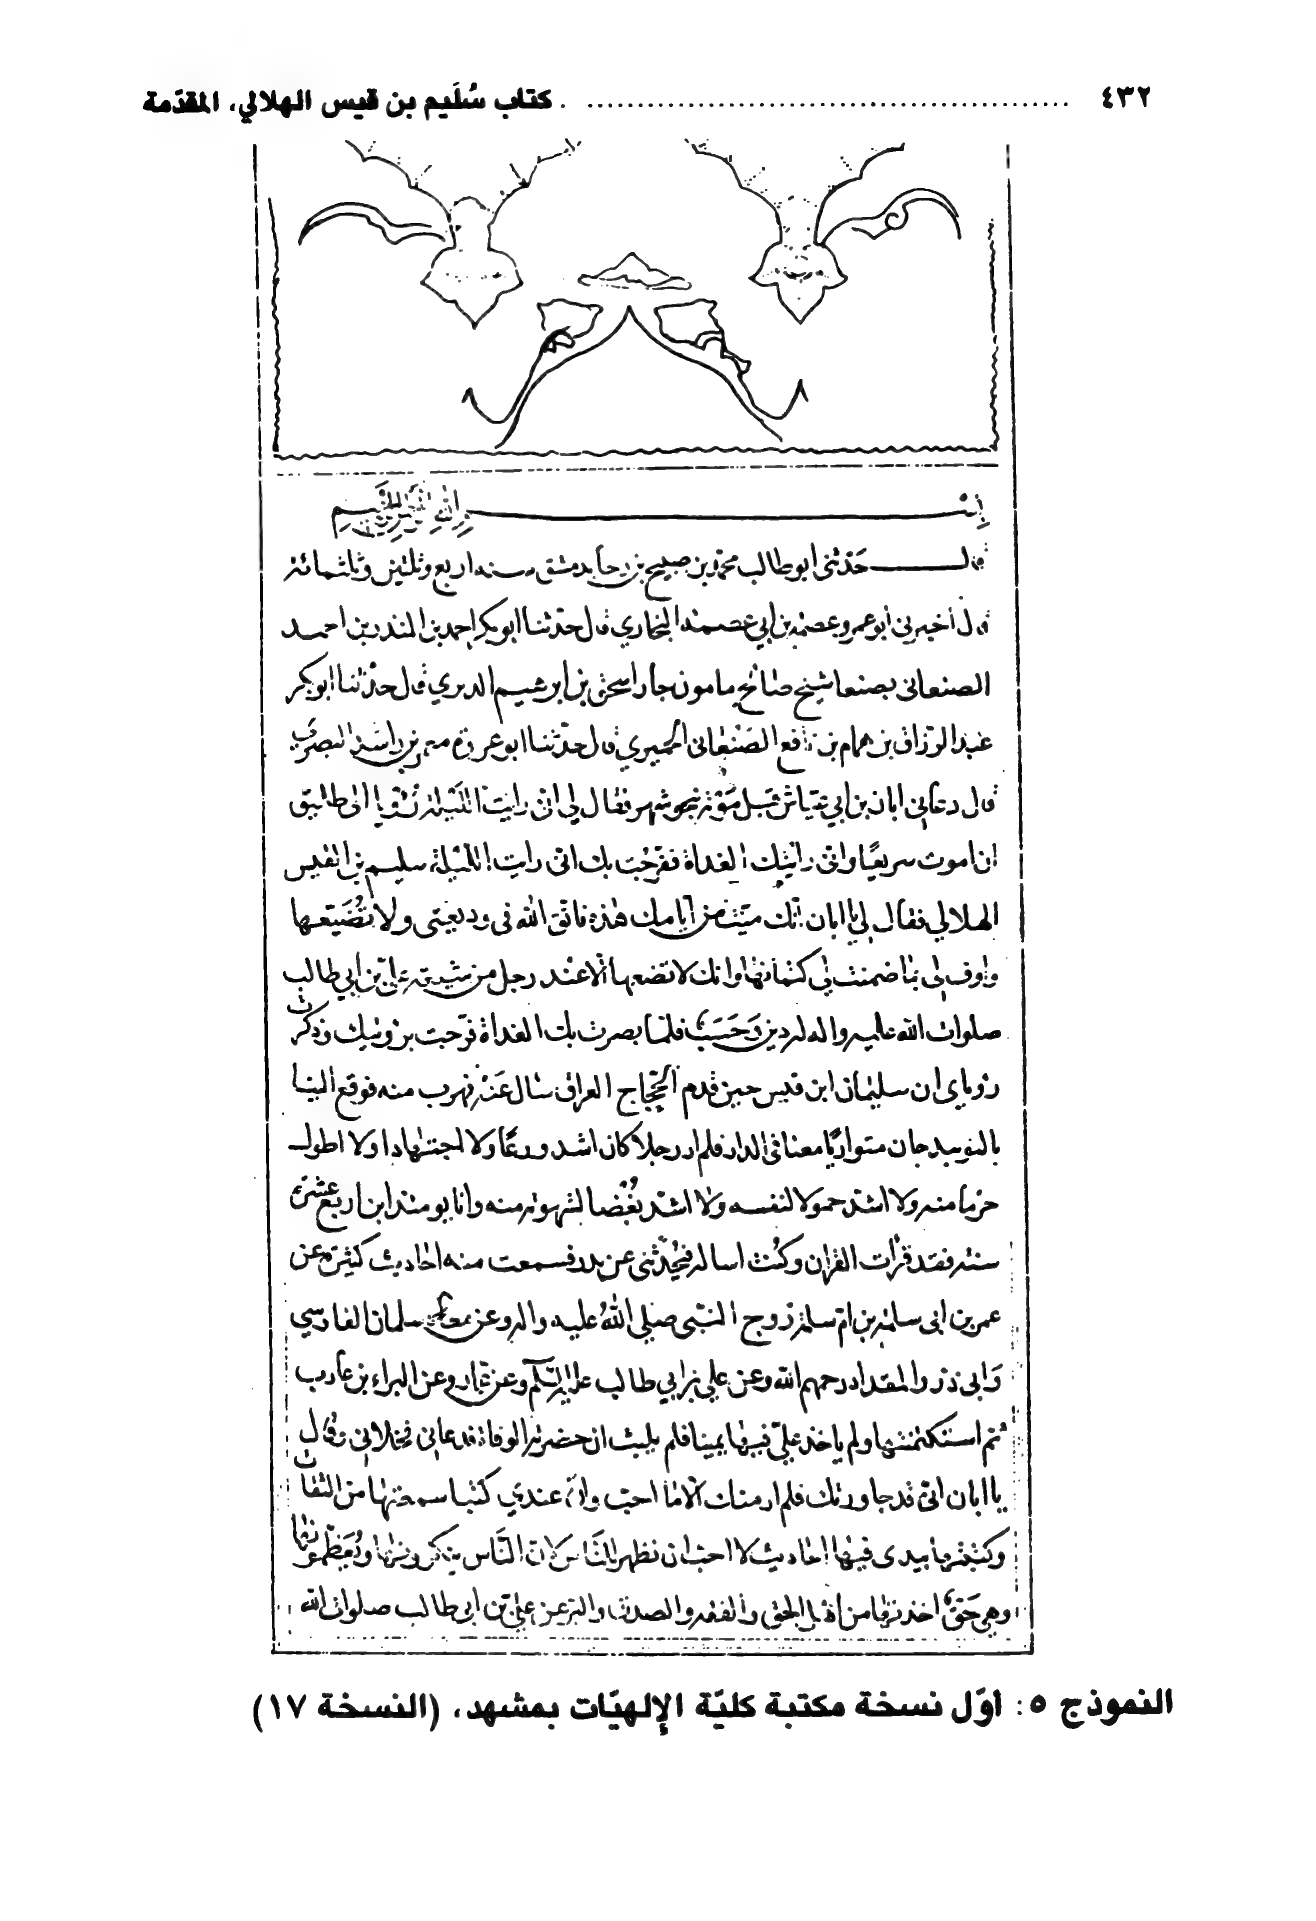 ٤٣٢ ........ كتاب سُلَيم بن قيس الهلالي، المقدّمة
بسم الله الرحمن الرحيم
قال حدثنى ابو طالب محمد بن صبيح بن رجا بدمشق سنه اربع وثلثين وثلثمائة
قال أخبرنى أبو عمرو عصمة بن أبي عصمة البخاري قال حدثنا ابوبكر احمد بن المنذر بن احمد
الصنعانى بصنعا شيخ صالح مامون جار اسحق بن ابرهيم الدبري قال حدثنا ابو بكر
عبد الرزاق بن همام بن نافع الصنعانى الحميري قال حدثنا ابو عروة معمر بن راشد البصرى
قال دعانى ابان بن ابي عياش قبل موته بنحو شهر فقال لي انى رايت الليلة رؤيا انى خليق
ان اموت سريعًا وانى رايتك الغداة ففرحت بك انى رايت الليلة سليم بن القيس
الهلالي فقال لي يا ابان انك ميت من أيامك هذه فاتق الله فى وديعتى ولا تضيعها
واوف لى بما ضمنت لي كتمانها وانك لا تضعها الا عند رجل من شيعة على بن أبي طالب
صلوات الله عليه واله له دين وحسب فلما بصرت بك الغداة فرحت برؤيتك وذكرت
رؤياى ان سليمان ابن قيس حين قدم الحجاج العراق سال عنه فهرب منه فوقع الينا
بالنوبيدجان متواريًا معنا فى الدار فلم ار رجلا كان اشد ورعًا ولا اجتهادا ولا اطول
حزنا منه ولا اشد خمولا لنفسه ولا اشد بغضا لشهوته منه وانا يومئذ ابن اربع عشرة
سنة فقد قرأت القران وكنت اساله فيحدثنى عن بدر فسمعت منه احاديث كثيرة عن
عمر بن ابى سلمة بن ام سلمة زوج النبى صلى الله عليه واله وعن معاذ سلمان الفارسي
وابى ذر والمقداد رحمهم الله وعن علي بن ابي طالب عليه السلم وعن عمار وعن البراء بن عازب
ثم استكتمنيها ولم ياخذ علىّ فيها يمينا فلم يلبث ان حضرته الوفاة فدعانى فخلا بى وقال
يا ابان انى قد جاورتك فلم ار منك الا ما احب وان عندي كتبا سمعتها من الثقات
وكتبتها بيدى فيها احاديث لا احب ان تظهر للناس لان الناس ينكرونها ويعظمونها
وهي حق اخذتها من اهل الحق والفقه والصدق والبر عن على بن ابى طالب صلوات الله
النموذج ٥ : أوّل نسخة مكتبة كليّة الإلهيّات بمشهد، (النسخة ١٧)